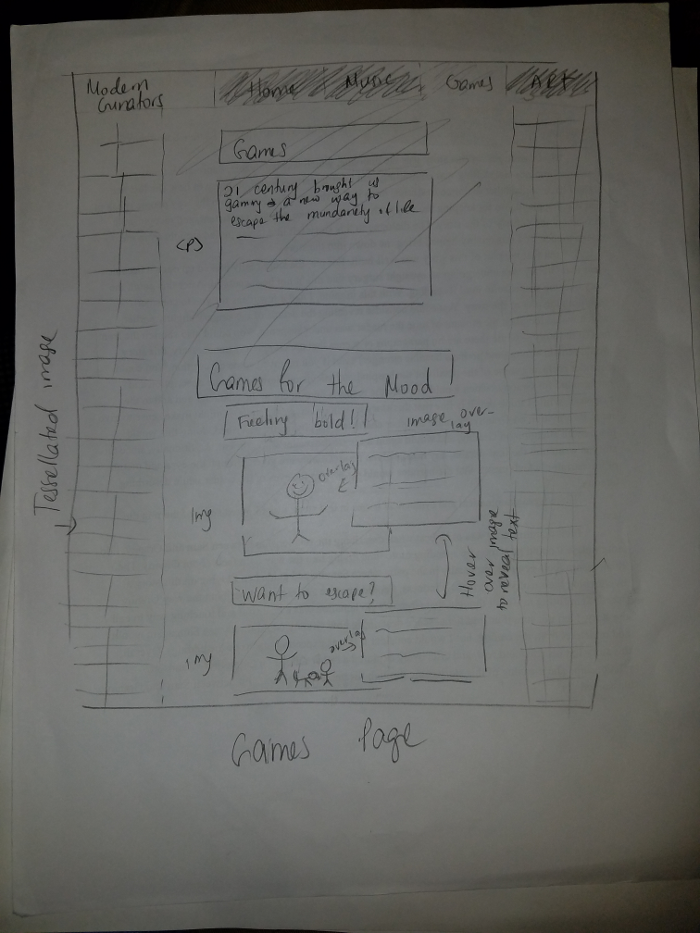 Modern
Curators
Home
Music
Games
Art
Games
21 century brought us
gaming → a new way to
escape the mundanety of life
<p>
Tessellated image
Games for the Mood
Feeling bold!!
image over-
lay
overlay
Img
Hover
over image
to reveal text
Want to escape?
overlay
img
Games Page